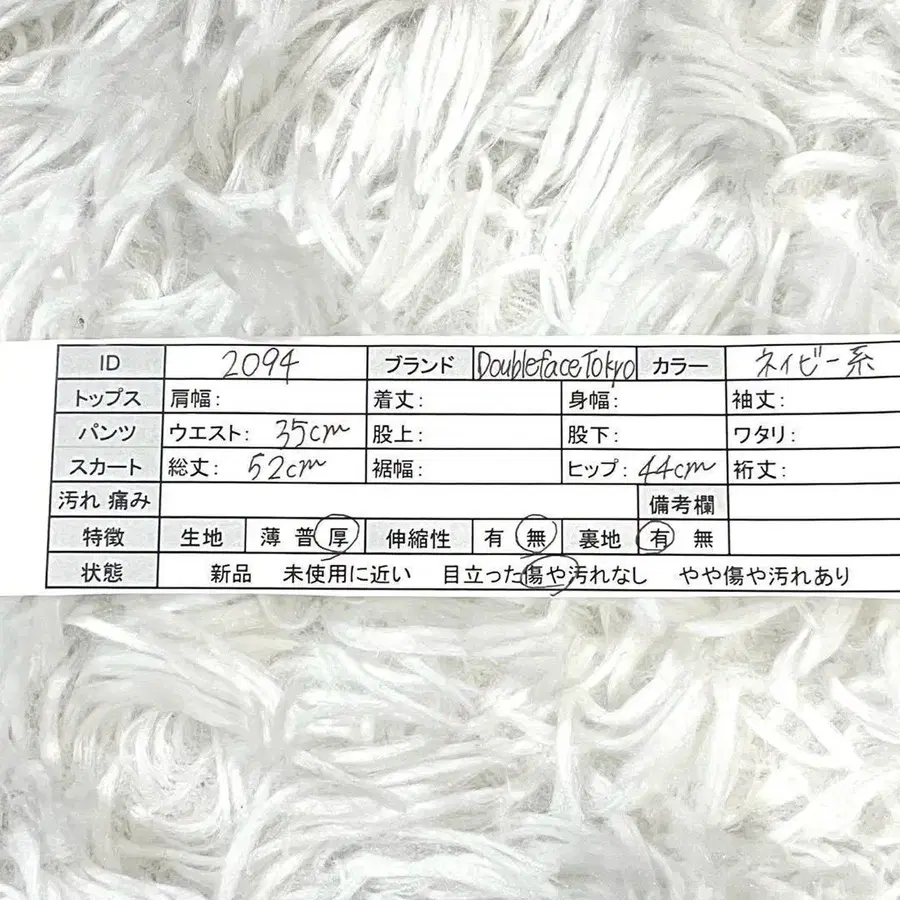 ID 2094 ブランド DoublefaceTokyo カラー ネイビー系
トップス 肩幅: 着丈: 身幅: 袖丈:
パンツ ウエスト: 35cm 股上: 股下: ワタリ:
スカート 総丈: 52cm 裾幅: ヒップ: 44cm 裄丈:
汚れ 痛み 備考欄
特徴 生地 薄 普 厚 伸縮性 有 無 裏地 有 無
状態 新品 未使用に近い 目立った傷や汚れなし やや傷や汚れあり